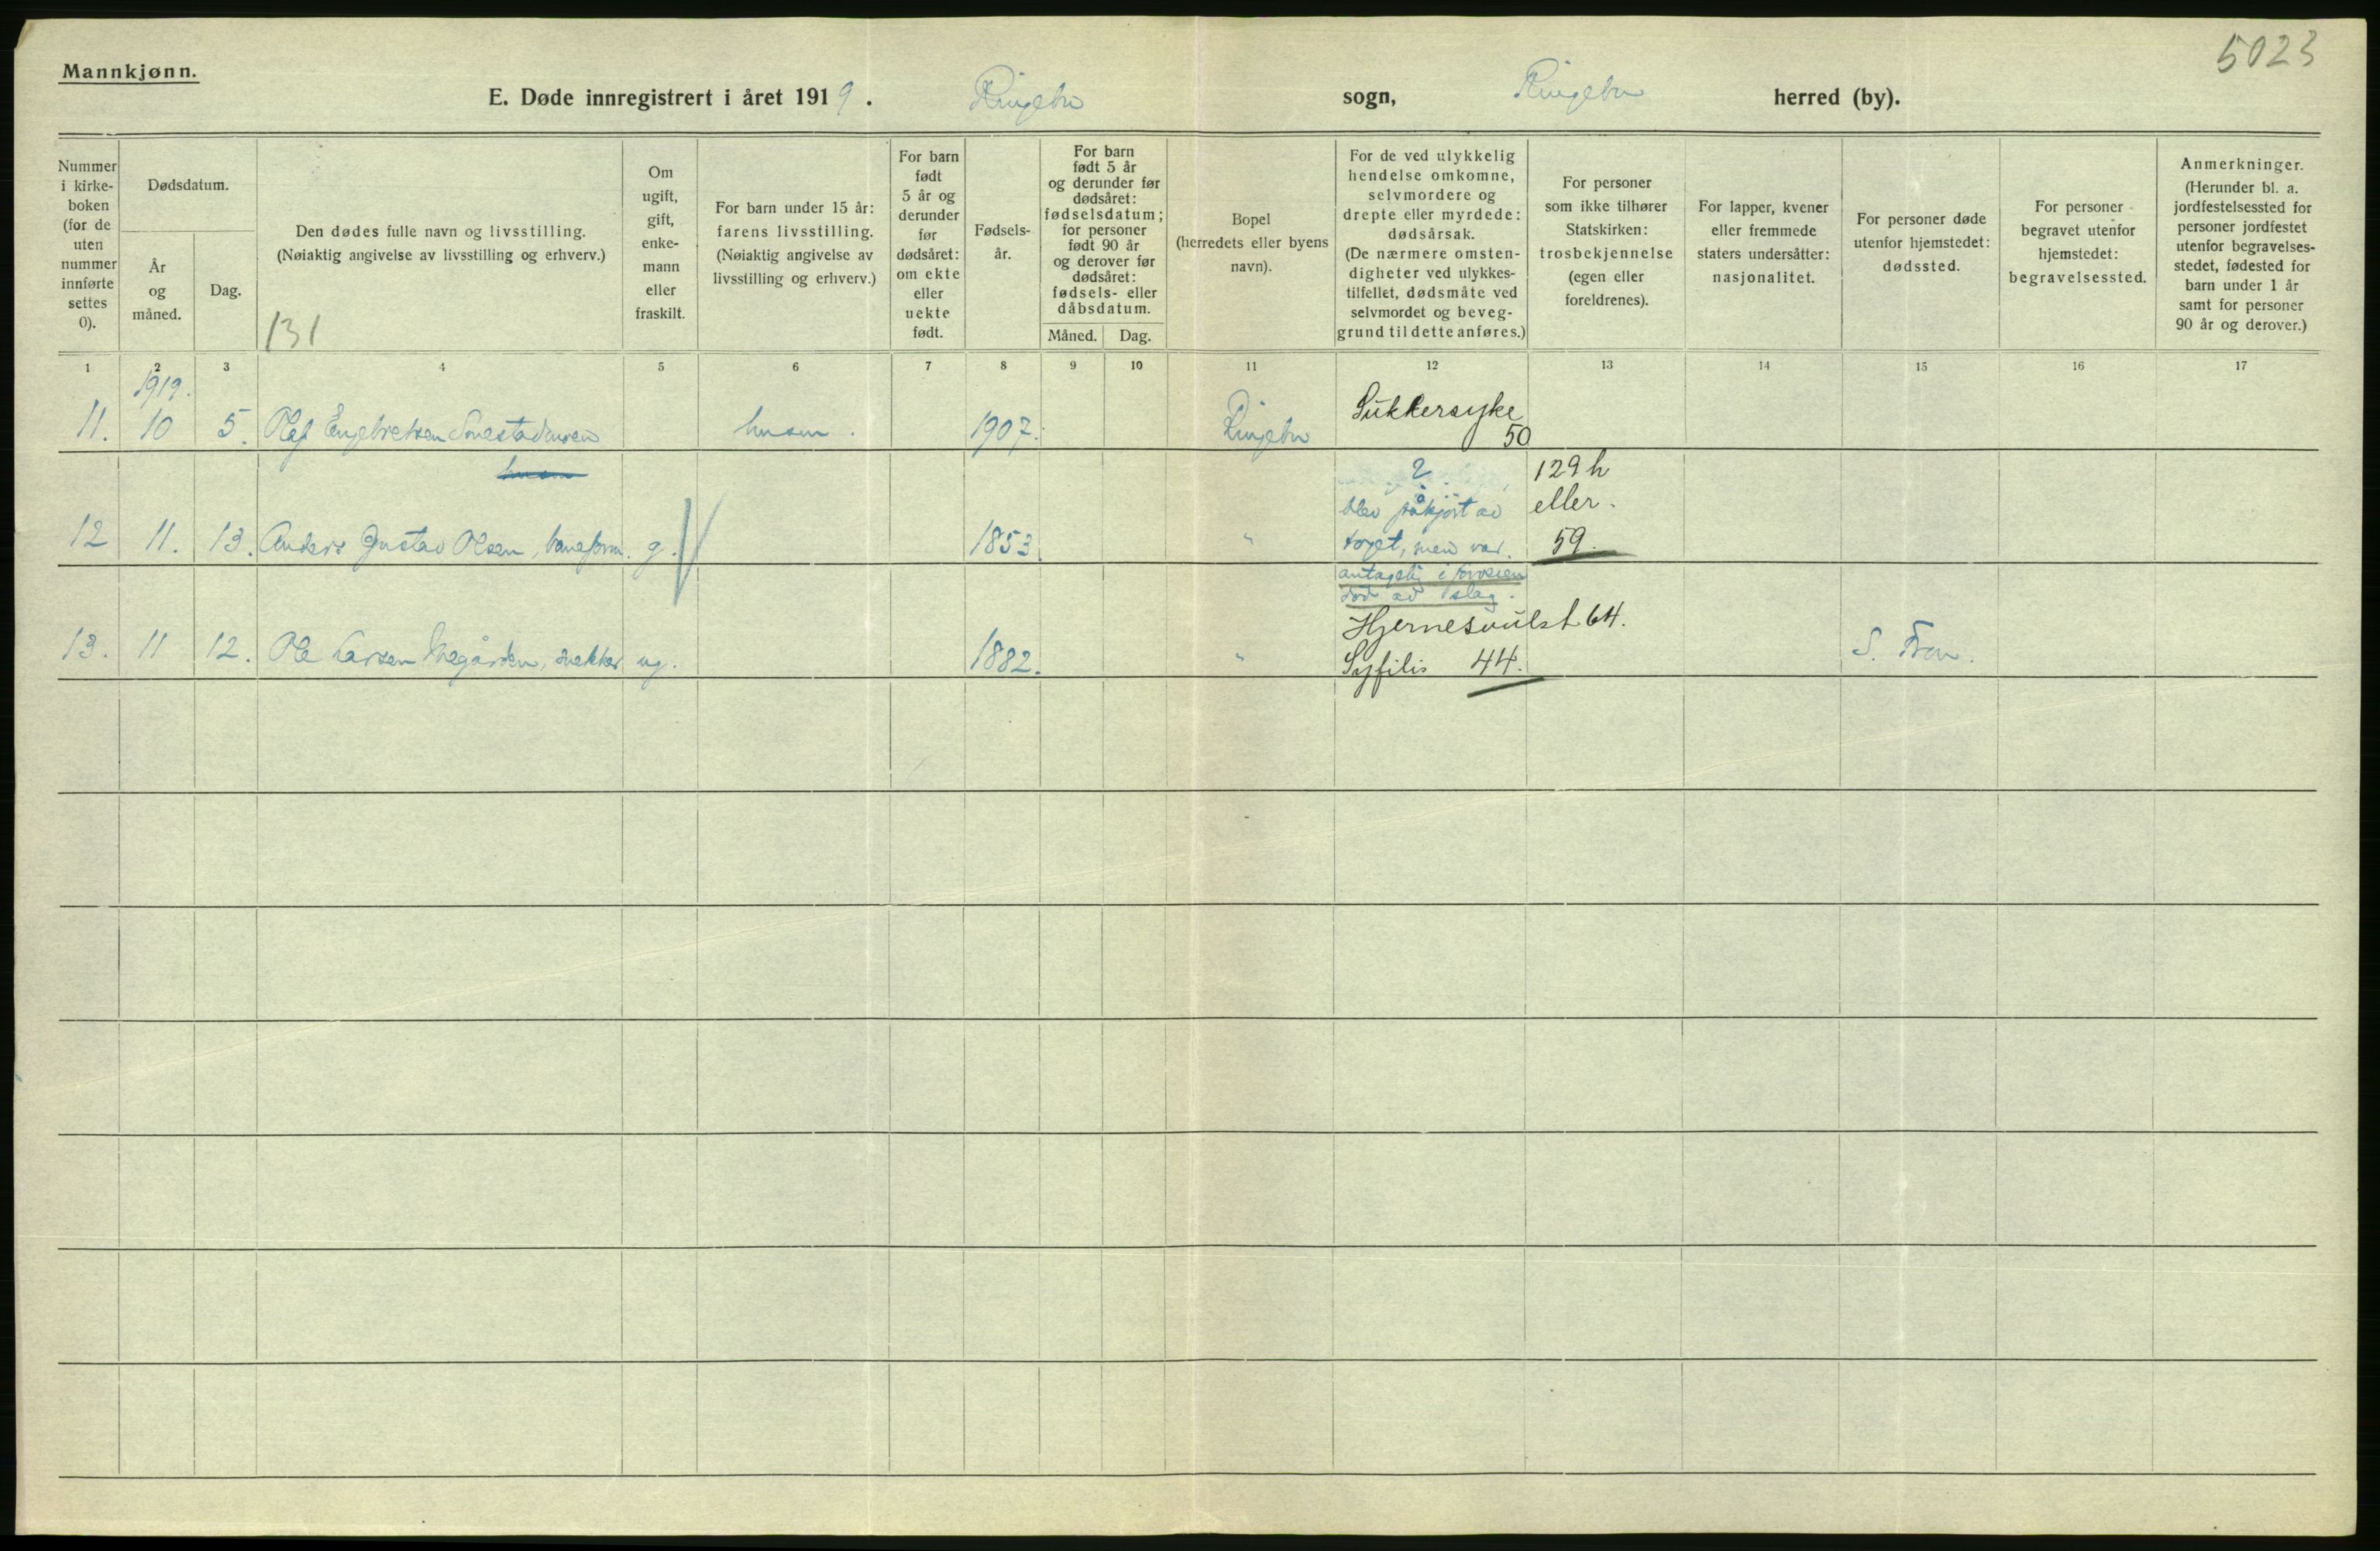 5023
Mannkjønn.
E. Døde innregistrert i året 1919. Ringebu sogn, Ringebu herred (by).
Nummer
i kirke-
boken
(for de
uten
nummer
innførte
settes
0).
Dødsdatum.
År
og
måned.
Dag.
Den dødes fulle navn og livsstilling.
(Nøiaktig angivelse av livsstilling og erhverv.)
131
Om
ugift,
gift,
enke-
mann
eller
fraskilt.
For barn under 15 år:
farens livsstilling.
(Nøiaktig angivelse av
livsstilling og erhverv.)
For barn
født
5 år og
derunder
før
dødsåret:
om ekte
eller
uekte
født.
Fødsels-
år.
For barn
født 5 år
og derunder før
dødsåret:
fødselsdatum;
for personer
født 90 år
og derover før
dødsåret:
fødsels- eller
dåbsdatum.
Måned. Dag.
Bopel
(herredets eller byens
navn).
For de ved ulykkelig
hendelse omkomne,
selvmordere og
drepte eller myrdede:
dødsårsak.
(De nærmere omsten-
digheter ved ulykkes-
tilfellet, dødsmåte ved
selvmordet og beveg-
grund til dette anføres.)
For personer
som ikke tilhører
Statskirken:
trosbekjennelse
(egen eller
foreldrenes).
For lapper, kvener
eller fremmede
staters undersåtter:
nasjonalitet.
For personer døde
utenfor hjemstedet:
dødssted.
For personer
begravet utenfor
hjemstedet:
begravelsessted.
Anmerkninger.
(Herunder bl. a.
jordfestelsessted for
personer jordfestet
utenfor begravelses-
stedet, fødested for
barn under 1 år
samt for personer
90 år og derover.)
1 2 3 4 5 6 7 8 9 10 11 12 13 14 15 16 17
1919.
11. 10 5. Olaf Engebretsen husm. 1907. Ringebu Sukkersyke
50
husm
2 129 h
blev påkjørt av eller.
12 11. 13. Anders Gustav Olsen, baneform. g. 1853 " toget, men var 59.
antagelig i forveien
død av slag.
Hjernesvulst 64.
13. 11 12. Ole Larsen snekker ug. 1882. " Syfilis 44. S. Fron.